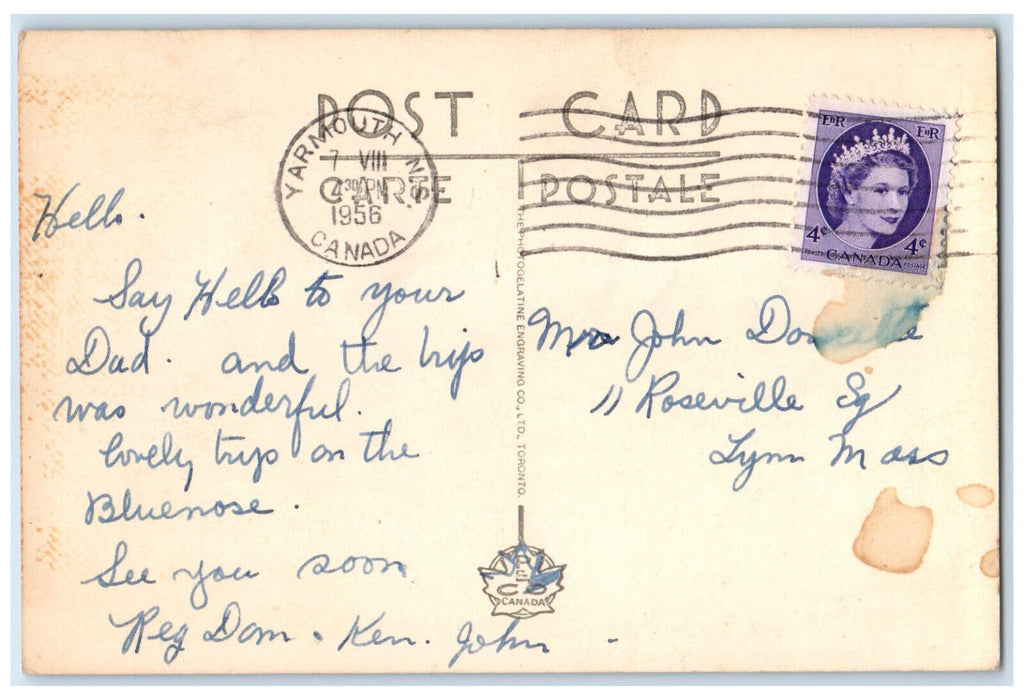 POST CARD
CARTE POSTALE
YARMOUTH N.S.
7 VIII
4 30 PM
1956
CANADA
EIIR EIIR
4¢ 4¢
POSTES CANADA POSTAGE
Hello.
Say Hello to your
Dad. and the trip
was wonderful.
lovely trip on the
Bluenose.
See you soon
Reg Dom. Ken. John
THE PHOTOGELATINE ENGRAVING CO., LTD., TORONTO.
PE
CO
CANADA
Mrs John
11 Roseville Sq
Lynn Mass